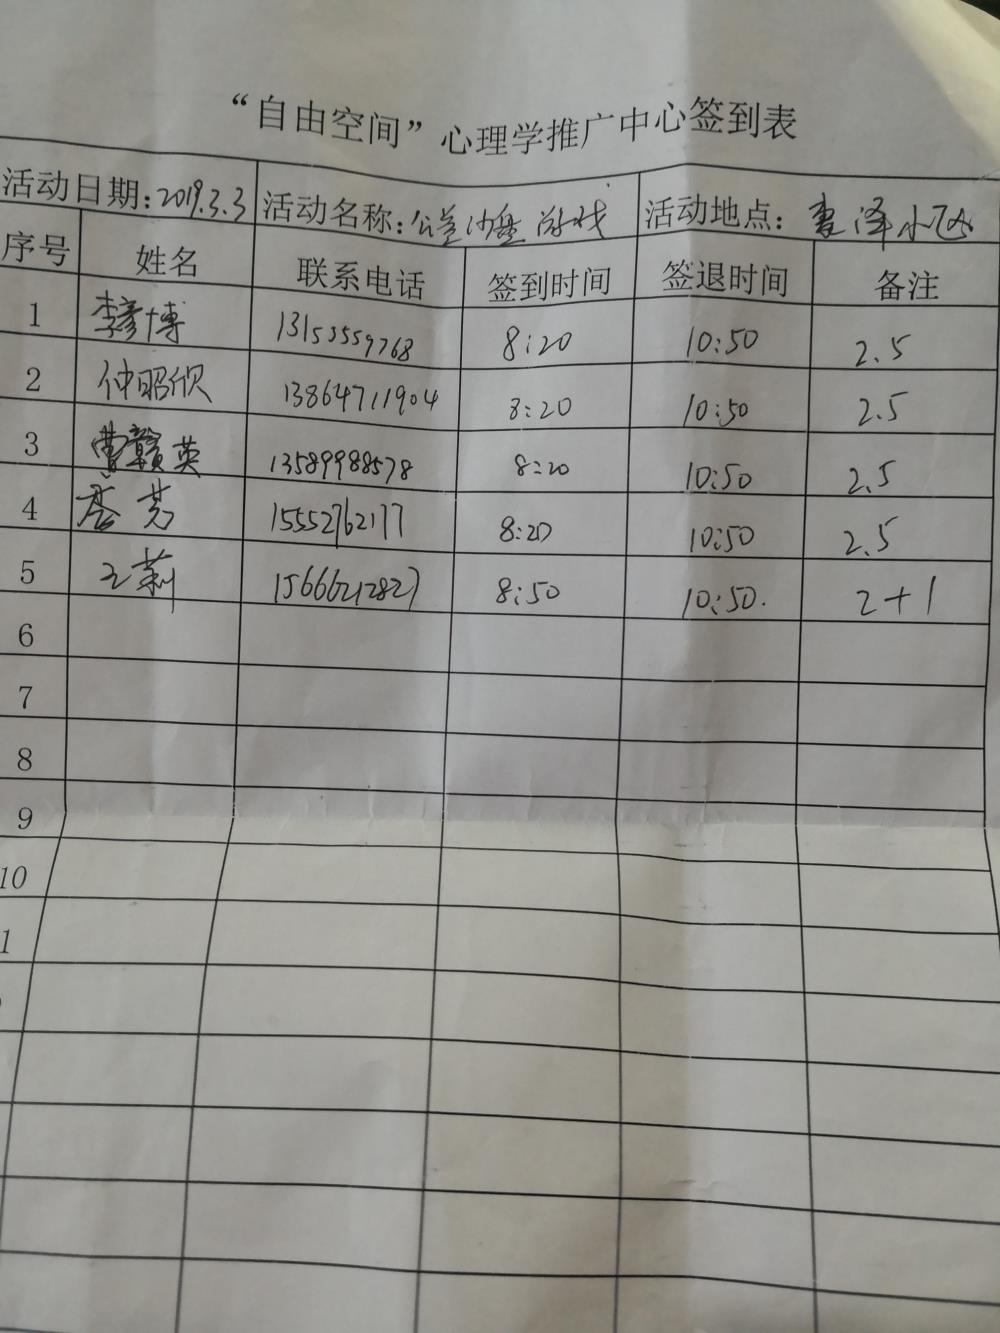 “自由空间”心理学推广中心签到表
活动日期:2019.3.3 活动名称:公益沙盘游戏 活动地点:泽小区
序号 姓名 联系电话 签到时间 签退时间 备注
1 李彦博 13153559768 8:20 10:50 2.5
2 仲昭欣 13864711904 8:20 10:50 2.5
3 曹赣英 13589988578 8:20 10:50 2.5
4 唐芳 15552762177 8:20 10:50 2.5
5 王莉 15666212827 8:50 10:50. 2+1
6
7
8
9
10
1